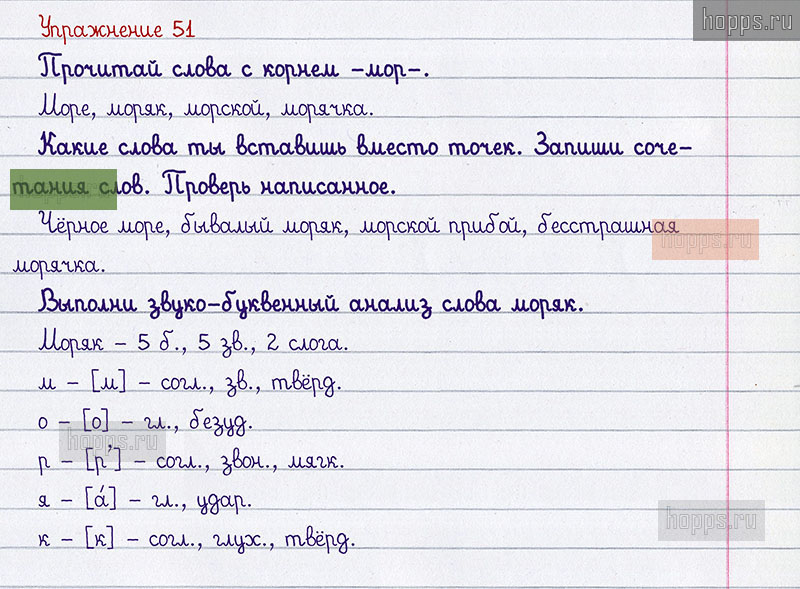 hopps.ru
Упражнение 51
Прочитай слова с корнем –мор–.
Море, моряк, морской, морячка.
Какие слова ты вставишь вместо точек. Запиши соче–
тания слов. Проверь написанное.
Чёрное море, бывалый моряк, морской прибой, бесстрашная
hopps.ru
морячка.
Выполни звуко–буквенный анализ слова моряк.
Моряк – 5 б., 5 зв., 2 слога.
м – [м] – согл., зв., твёрд.
о – [о] – гл., безуд.
hopps.ru
р – [р'] – согл., звон., мягк.
я – [а́] – гл., удар.
hopps.ru
к – [к] – согл., глух., твёрд.